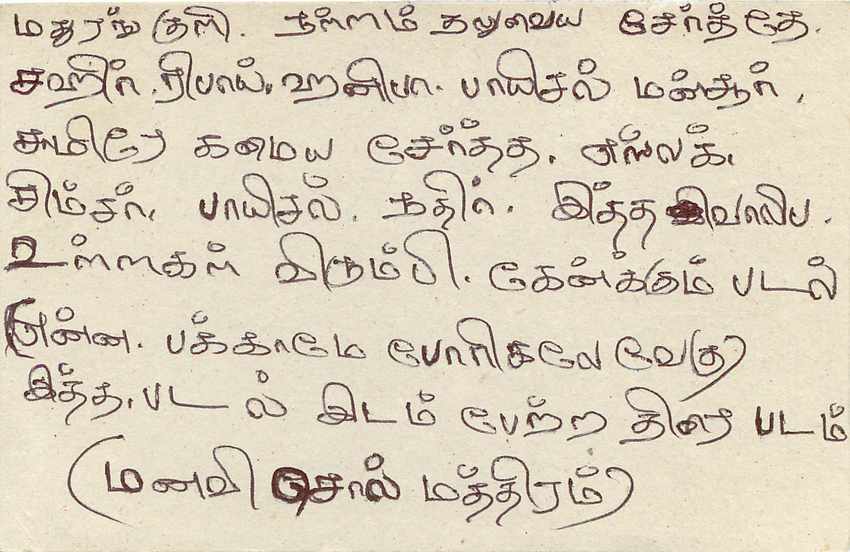 மதுரங் குளி. நல்லம் தலுவைய சேர்த்தே.
சஹீர். ரிபாய். ஹனிபா. பாயிசல் மன்சூர்.
சுமிரே கமைய சேர்த்த.
சிம்சர். பாயிசல். நதிர். இத்த வாலிப.
உள்ளகள் விரும்பி. கேன்க்கும் படல்
என்ன. பக்காமே போரிகலே வேகு
இத்த. படல் இடம் பேற்ற திரை படம்
(மனவி சொல் மத்திரம்)